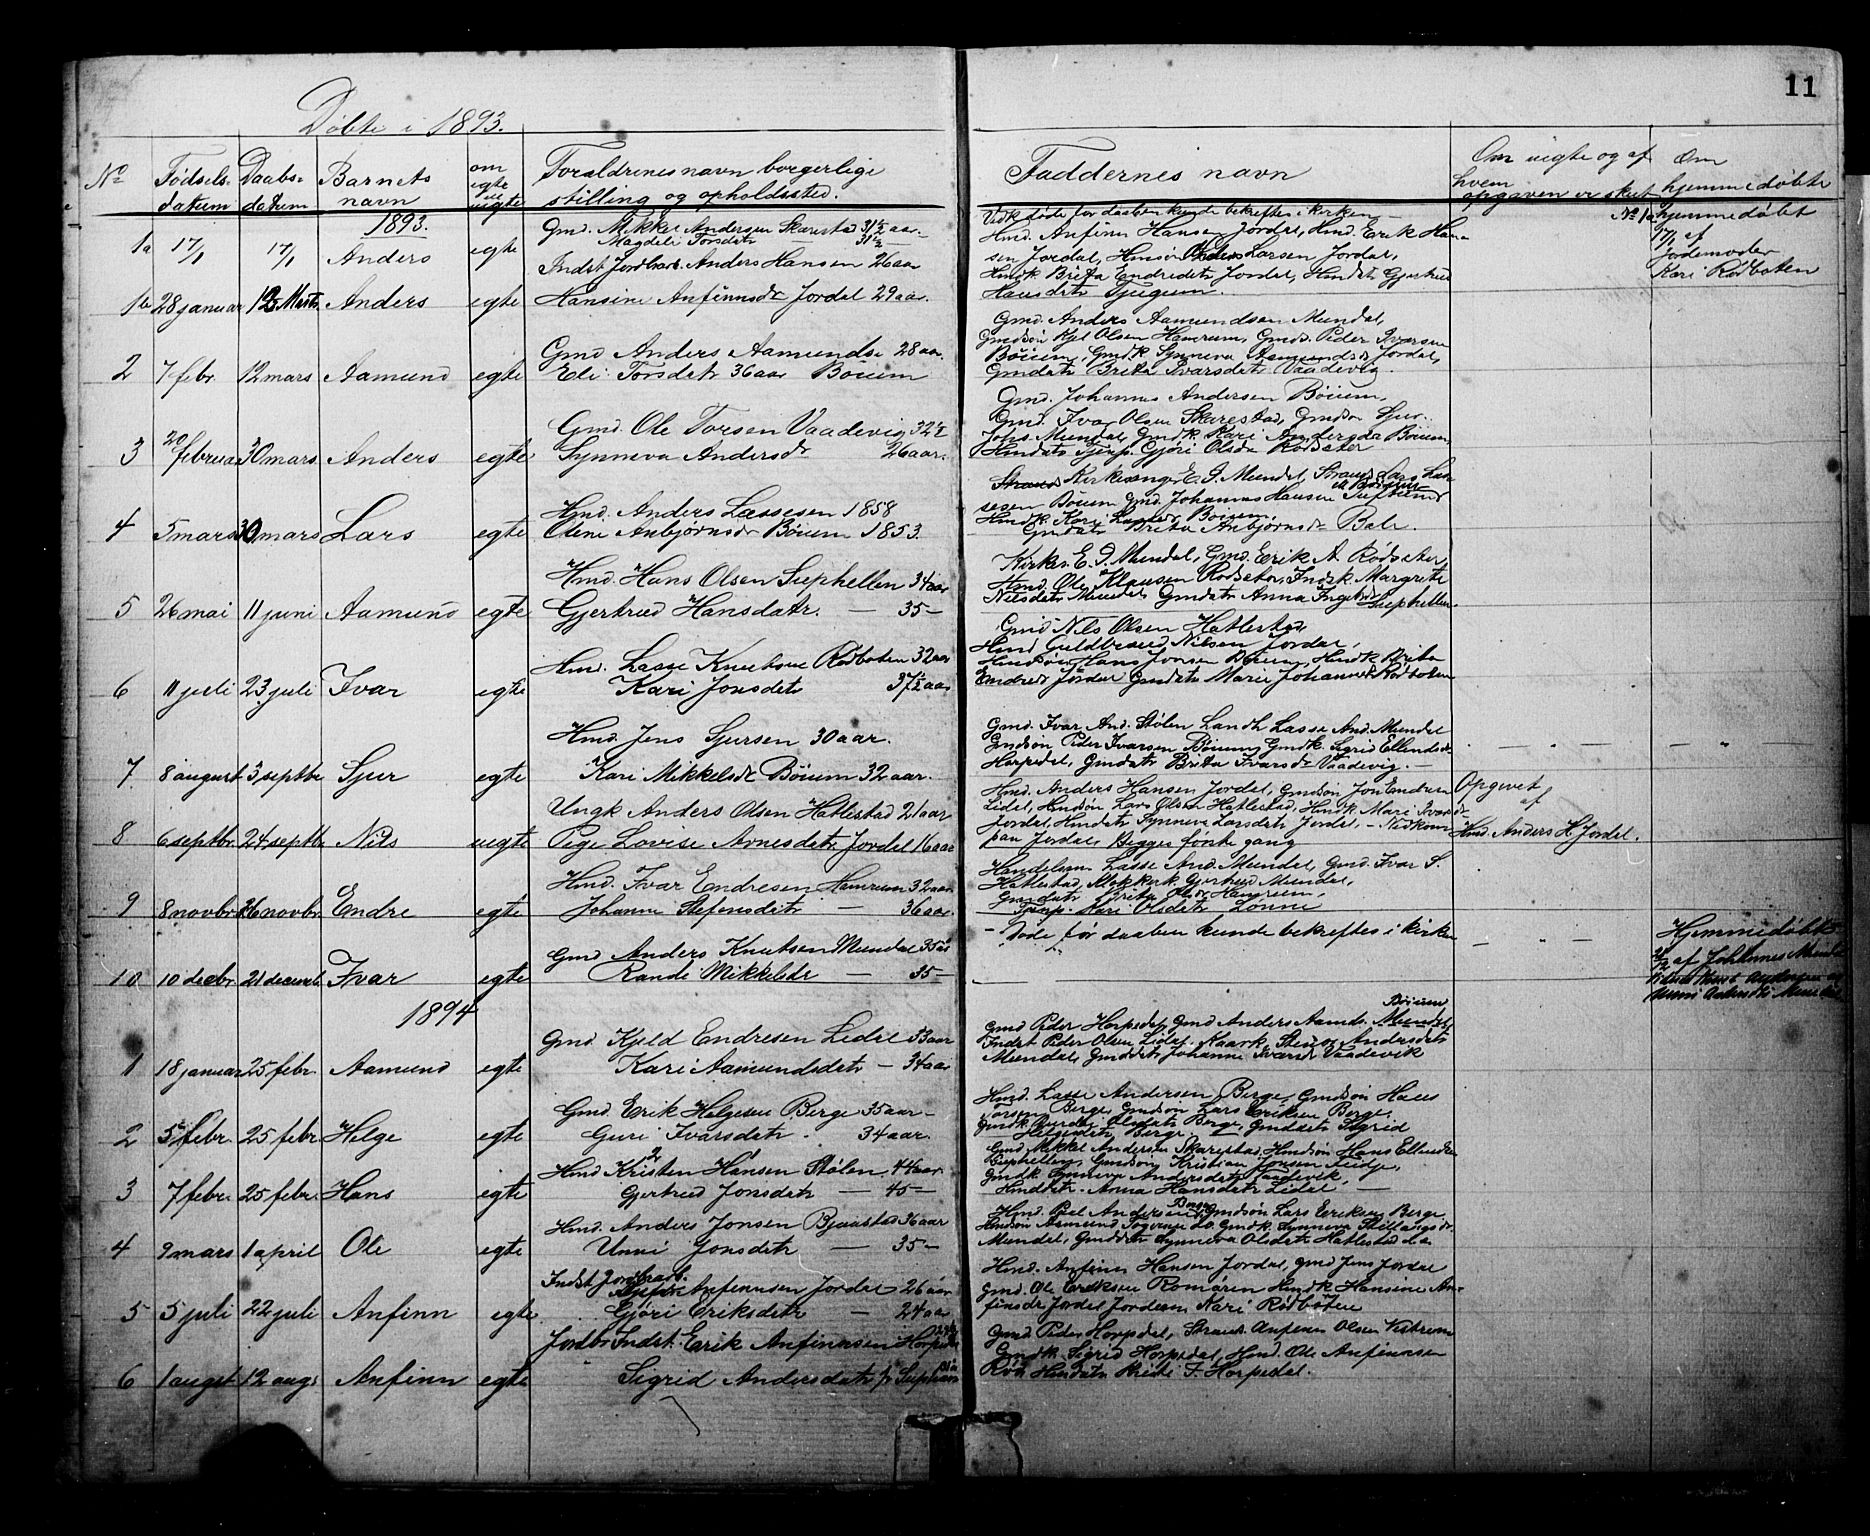 11
Døbte i 1893.
No
Fødsels-
datum
Daabs-
datum
Barnets
navn
om
egte
ell.
uegte
Forældrenes navn borgerlige
stilling og opholdssted.
Faddernes navn
Om uegte og af
hvem
opgaven er skeet
Om
hjemmedøbte
1893.
1a 17/1 17/1 Anders egte
Gmd. Mikkel Andersen Skarestad 31½ aar.
Magdeli Torsdatr 31½ —
døde før daaben kunde bekreftes i kirken —
No 1a hjemmedøbt
17/1 af
Jordemoder
Kari Rødboten
1b 28 januar 12 Marts Anders egte
Indst Jordbrarb. Anders Hansen 26 aar
Hansine Anfinnsdr Jordal 29 aar.
Hmd. Anfinn Hansen Jordal, Hmd. Erik Han-
sen Jordal, Hmsøn Anders Larsen Jordal,
Hmdk Brita Endredatr Jordal, Hmdatr Gjertrud
Hansdatr Tjugum.
2 7 febr. 12 mars Aamund egte
Gmd Anders Aamundsen 28 aar.
Eli Torsdatr 36 aar Bøium
Gmd Anders Aamundsen Mundal,
Gmdsøn Kjel Olsen Hamrum, Gmds. Peder Ivarsen
Bøium, Gmdk. Synneva Aamundsdr Jordal,
Gmdatr Brita Ivarsdatr Vaadevig.
3 20 februar 30 mars. Anders egte
Gmd. Ole Torsen Vaadevig 32½
Synneva Andersdr 26 aar.
Gmd. Johannes Andersen Bøium,
Gmd. Ivar Olsen Skarestad, Gmdsøn Sjur
Johs. Mundal, Gmdk. Kari Andersda Bøium,
Hmdatr Tjenp. Gjøri Olsdr Rødseter
4 5 mars 30 mars Lars egte
Hmd. Anders Lassesen 1858
Oleni Anbjørnsdr Bøium 1853.
Kirkesanger E. J. Mundal, Strands. Lars Las-
sesen Bøium Gmd. Johannes Hansen Tuftene
Hmdk. Kari Bøium,
Gmdatr Brita Anbjørnsdr Bale.
5 26 mai 11 juni Aamund egte
Hmd. Hans Olsen Suphellen 34 aar
Gjertrud Hansdatr. — 35 —
Kirkes. E. J. Mundal, Gmd. Erik A. Rødseter,
Hmd. Ole Klausen Rødseter, Indk. Margrete
Nilsdatr Mundal, Gmdatr Anna Suphellen.
6 11 juli 23 juli Ivar egte
Hmd. Lasse Rødboten 32 aar
Kari Jonsdatr 37½ aar
Gmd Nils Olsen Hatlestad
Hmd Guldbrand Nilsen Jordal,
Hmdsøn Hans Jonsen Bøium, Hmdk Brita
Endredr Jordal Gmdatr Marie Johannesdr Rødboten
7. 8 august 3 septbr Sjur egte
Hmd. Jens Sjursen 30 aar.
Kari Mikkelsdr Bøium 32 aar.
Gmd. Ivar And. Stølen Landh. Lasse And. Mundal
Gmdsøn Peder Ivarsen Bøium, Gmdk. Sigrid Ellendsdr
Horpedal, Gmdatr Brita Ivarsdr Vaadevig. —
8 6 septbr 24 septbr Nils uegte
Ungk Anders Olsen Hatlestad 21 aar
Pige Lovise Arnesdatr Jordal 16 aar
Hmd. Anders Hansen Jordal, Gmdsøn Jon Endresen
Lidal, Hmdsøn Lars Olsen Hatlestad, Hmdk. Mari Ivarsdr
Jordal, Hmdatr Synneva Larsdatr Jordal. — Nedkom
paa Jordal, Begges første gang
Opgivet
af
Hmd. Anders H. Jordal.
9 8 novbr 26 novbr. Endre egte
Hmd. Ivar Endresen Hamrum 32 aar
Johanne Stefensdatr — 36 aar.
Handelsm. Lasse And. Mundal, Gmd. Ivar S.
Hatlestad, Gjertrud Mundal,
Gmdatr Brita Olsdr Hamrum,
Tjenp. Kari Olsdatr Lønne
10 10 decbr. 21 decemb. Ivar egte
Gmd Anders Knutsen Mundal 35 aar
Randi Mikkelsdr — 35 —
— Døde før daaben kunde bekreftes i kirken
Hjemmedøbt
21/12 af Johannes Mundal
1894
1 18 januar 25 febr. Aamund egte
Gmd. Kjeld Endresen Lidal 33 aar
Kari Aamundsdatr — 34 aar
Gmd Peder Horpedal, Gmd Anders Aamds. Bøium
Indst Peder Olsen Lidal, Andersdatr
Mundal, Gmddatr Johanne Ivarsdr Vaadevik
2 5 febr. 25 febr. Helge egte
Gmd. Erik Helgesen Berge 35 aar —
Guri Ivarsdatr. 34 aar.
Hmd. Lasse Andersen Berge, Gmdsøn Hans
Torsen Berge, Gmdsøn Lars Eriksen Berge.
Gmdk. Gurda Olsdatr Berge, Gmdatr Sigrid
Helgesdatr Berge. —
3 7 febr. 25 febr. Hans egte
Hmd Kristen Hansen Stølen 44 aar
Gjertrud Jonsdatr — 45 —
Gmd Mikkel Andersen Skarestad, Hmdsøn Hans Ellendsen
Suphellen, Gmdsøn Kristian Jonsen
Gmdk Synneva Andersdatr Vaadevik,
Hmddatr. Anna Hansdatr Lidal —
4 9 mars 1 april Ole egte
Hmd. Anders Jonsen Bjaastad 36 aar
Unni Jonsdatr — 35 —
Hmd. Pel Andersen Berge, Gmdsøn Lars Eriksen Berge
Hmdsøn Aamund do. Gmdk. Synneva
Mundal, Gmddatr Synneva Olsdatr Hatlestad
5 5 juli 22 juli Anfinn egte
Indst Jordbrarb.
Anfinnsen Jordal 26 aar
Gjøri Eriksdatr — 24 aar
Hmd. Anfinn Hansen Jordal, Gmd Jens Jordal
Gmd. Ole Eriksen Romøren Hmdk Hansine An-
finsdr Jordal Jordem. Kari Rødboten
6 1 augst 12 augs Anfinn egte
Jordbr Indst. Erik Anfinnsen Horpedal
Sigrid Andersdatr
Gmd Peder Horpedal, Strands. Anfinn Olsen
Gmdk. Sigrid Horpedal, Hmd. Ole Anfinnsen
Hmdatr F. Horpedal.